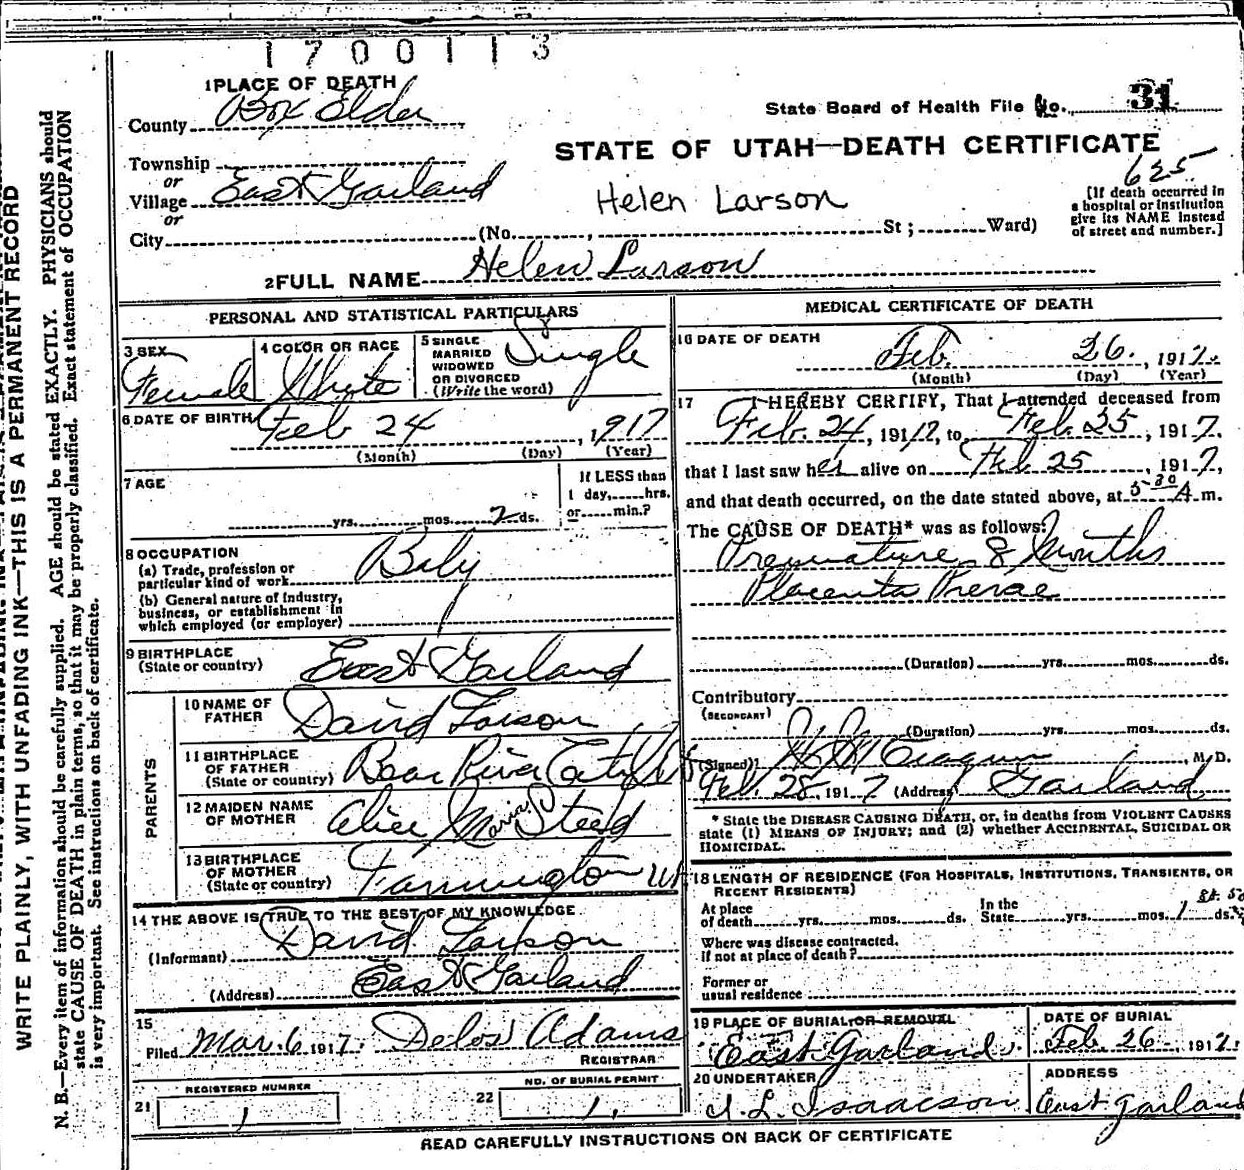 1700113
1 PLACE OF DEATH
County Box Elder
State Board of Health File No. 31
STATE OF UTAH—DEATH CERTIFICATE
Township
or
Village East Garland
or
City (No. , St ; Ward)
Helen Larson
625
[If death occurred in
a hospital or institution
give its NAME instead
of street and number.]
2 FULL NAME Helen Larson
PERSONAL AND STATISTICAL PARTICULARS
3 SEX
Female
4 COLOR OR RACE
Whyte
5 SINGLE
MARRIED
WIDOWED
OR DIVORCED
(Write the word)
Single
6 DATE OF BIRTH Feb 24, 1917
(Month) (Day) (Year)
7 AGE
yrs. mos. 2 ds.
If LESS than
1 day, hrs.
or min.?
8 OCCUPATION
(a) Trade, profession or
particular kind of work Baby
(b) General nature of Industry,
business, or establishment in
which employed (or employer)
9 BIRTHPLACE
(State or country) East Garland
PARENTS
10 NAME OF
FATHER David Larson
11 BIRTHPLACE
OF FATHER
(State or country) Bear River City
12 MAIDEN NAME
OF MOTHER Alice Maria Steed
13 BIRTHPLACE
OF MOTHER
(State or country) Farmington
14 THE ABOVE IS TRUE TO THE BEST OF MY KNOWLEDGE
(Informant) David Larson
(Address) East Garland
15
Filed Mar. 6 1917. Delos Adams
REGISTRAR
21 REGISTERED NUMBER
1
22 NO. OF BURIAL PERMIT
1.
MEDICAL CERTIFICATE OF DEATH
16 DATE OF DEATH
Feb. 26. , 1917.
(Month) (Day) (Year)
17 I HEREBY CERTIFY, That I attended deceased from
Feb. 24, 1917, to Feb. 25, 1917.
that I last saw her alive on Feb 25, 1917,
and that death occurred, on the date stated above, at 5 30 A m.
The CAUSE OF DEATH* was as follows:
Premature 8 Months
Placenta
(Duration) yrs. mos. ds.
Contributory
(SECONDARY)
(Duration) yrs. mos. ds.
(Signed) , M. D.
Feb. 28, 1917 (Address) Garland
* State the DISEASE CAUSING DEATH, or, in deaths from VIOLENT CAUSES
state (1) MEANS OF INJURY; and (2) whether ACCIDENTAL, SUICIDAL OR
HOMICIDAL.
18 LENGTH OF RESIDENCE (FOR HOSPITALS, INSTITUTIONS, TRANSIENTS, OR
RECENT RESIDENTS)
At place
of death yrs. mos. ds. In the
State yrs. mos. ds.
Where was disease contracted.
If not at place of death?
Former or
usual residence
19 PLACE OF BURIAL OR REMOVAL
East Garland
DATE OF BURIAL
Feb. 26, 1917.
20 UNDERTAKER
J. L. Isaacson
ADDRESS
East Garland
READ CAREFULLY INSTRUCTIONS ON BACK OF CERTIFICATE
WRITE PLAINLY, WITH UNFADING INK—THIS IS A PERMANENT RECORD
N. B.—Every item of information should be carefully supplied. AGE should be stated EXACTLY. PHYSICIANS should
state CAUSE OF DEATH in plain terms, so that it may be properly classified. Exact statement of OCCUPATION
is very important. See instructions on back of certificate.